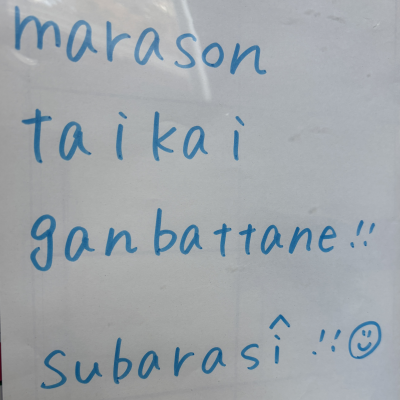 marason
taikai
ganbattane!!
subarasî!!☺